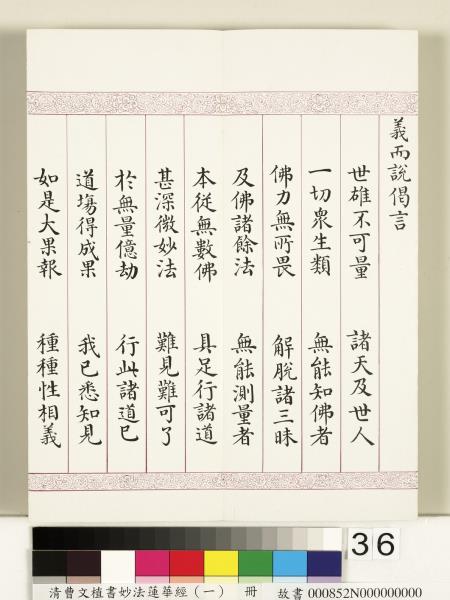 義而說偈言
世雄不可量 諸天及世人
一切衆生類 無能知佛者
佛力無所畏 解脫諸三昧
及佛諸餘法 無能測量者
本從無數佛 具足行諸道
甚深微妙法 難見難可了
於無量億劫 行此諸道已
道塲得成果 我已悉知見
如是大果報 種種性相義
36
清曹文植書妙法蓮華經(一) 冊 故書 000852N000000000